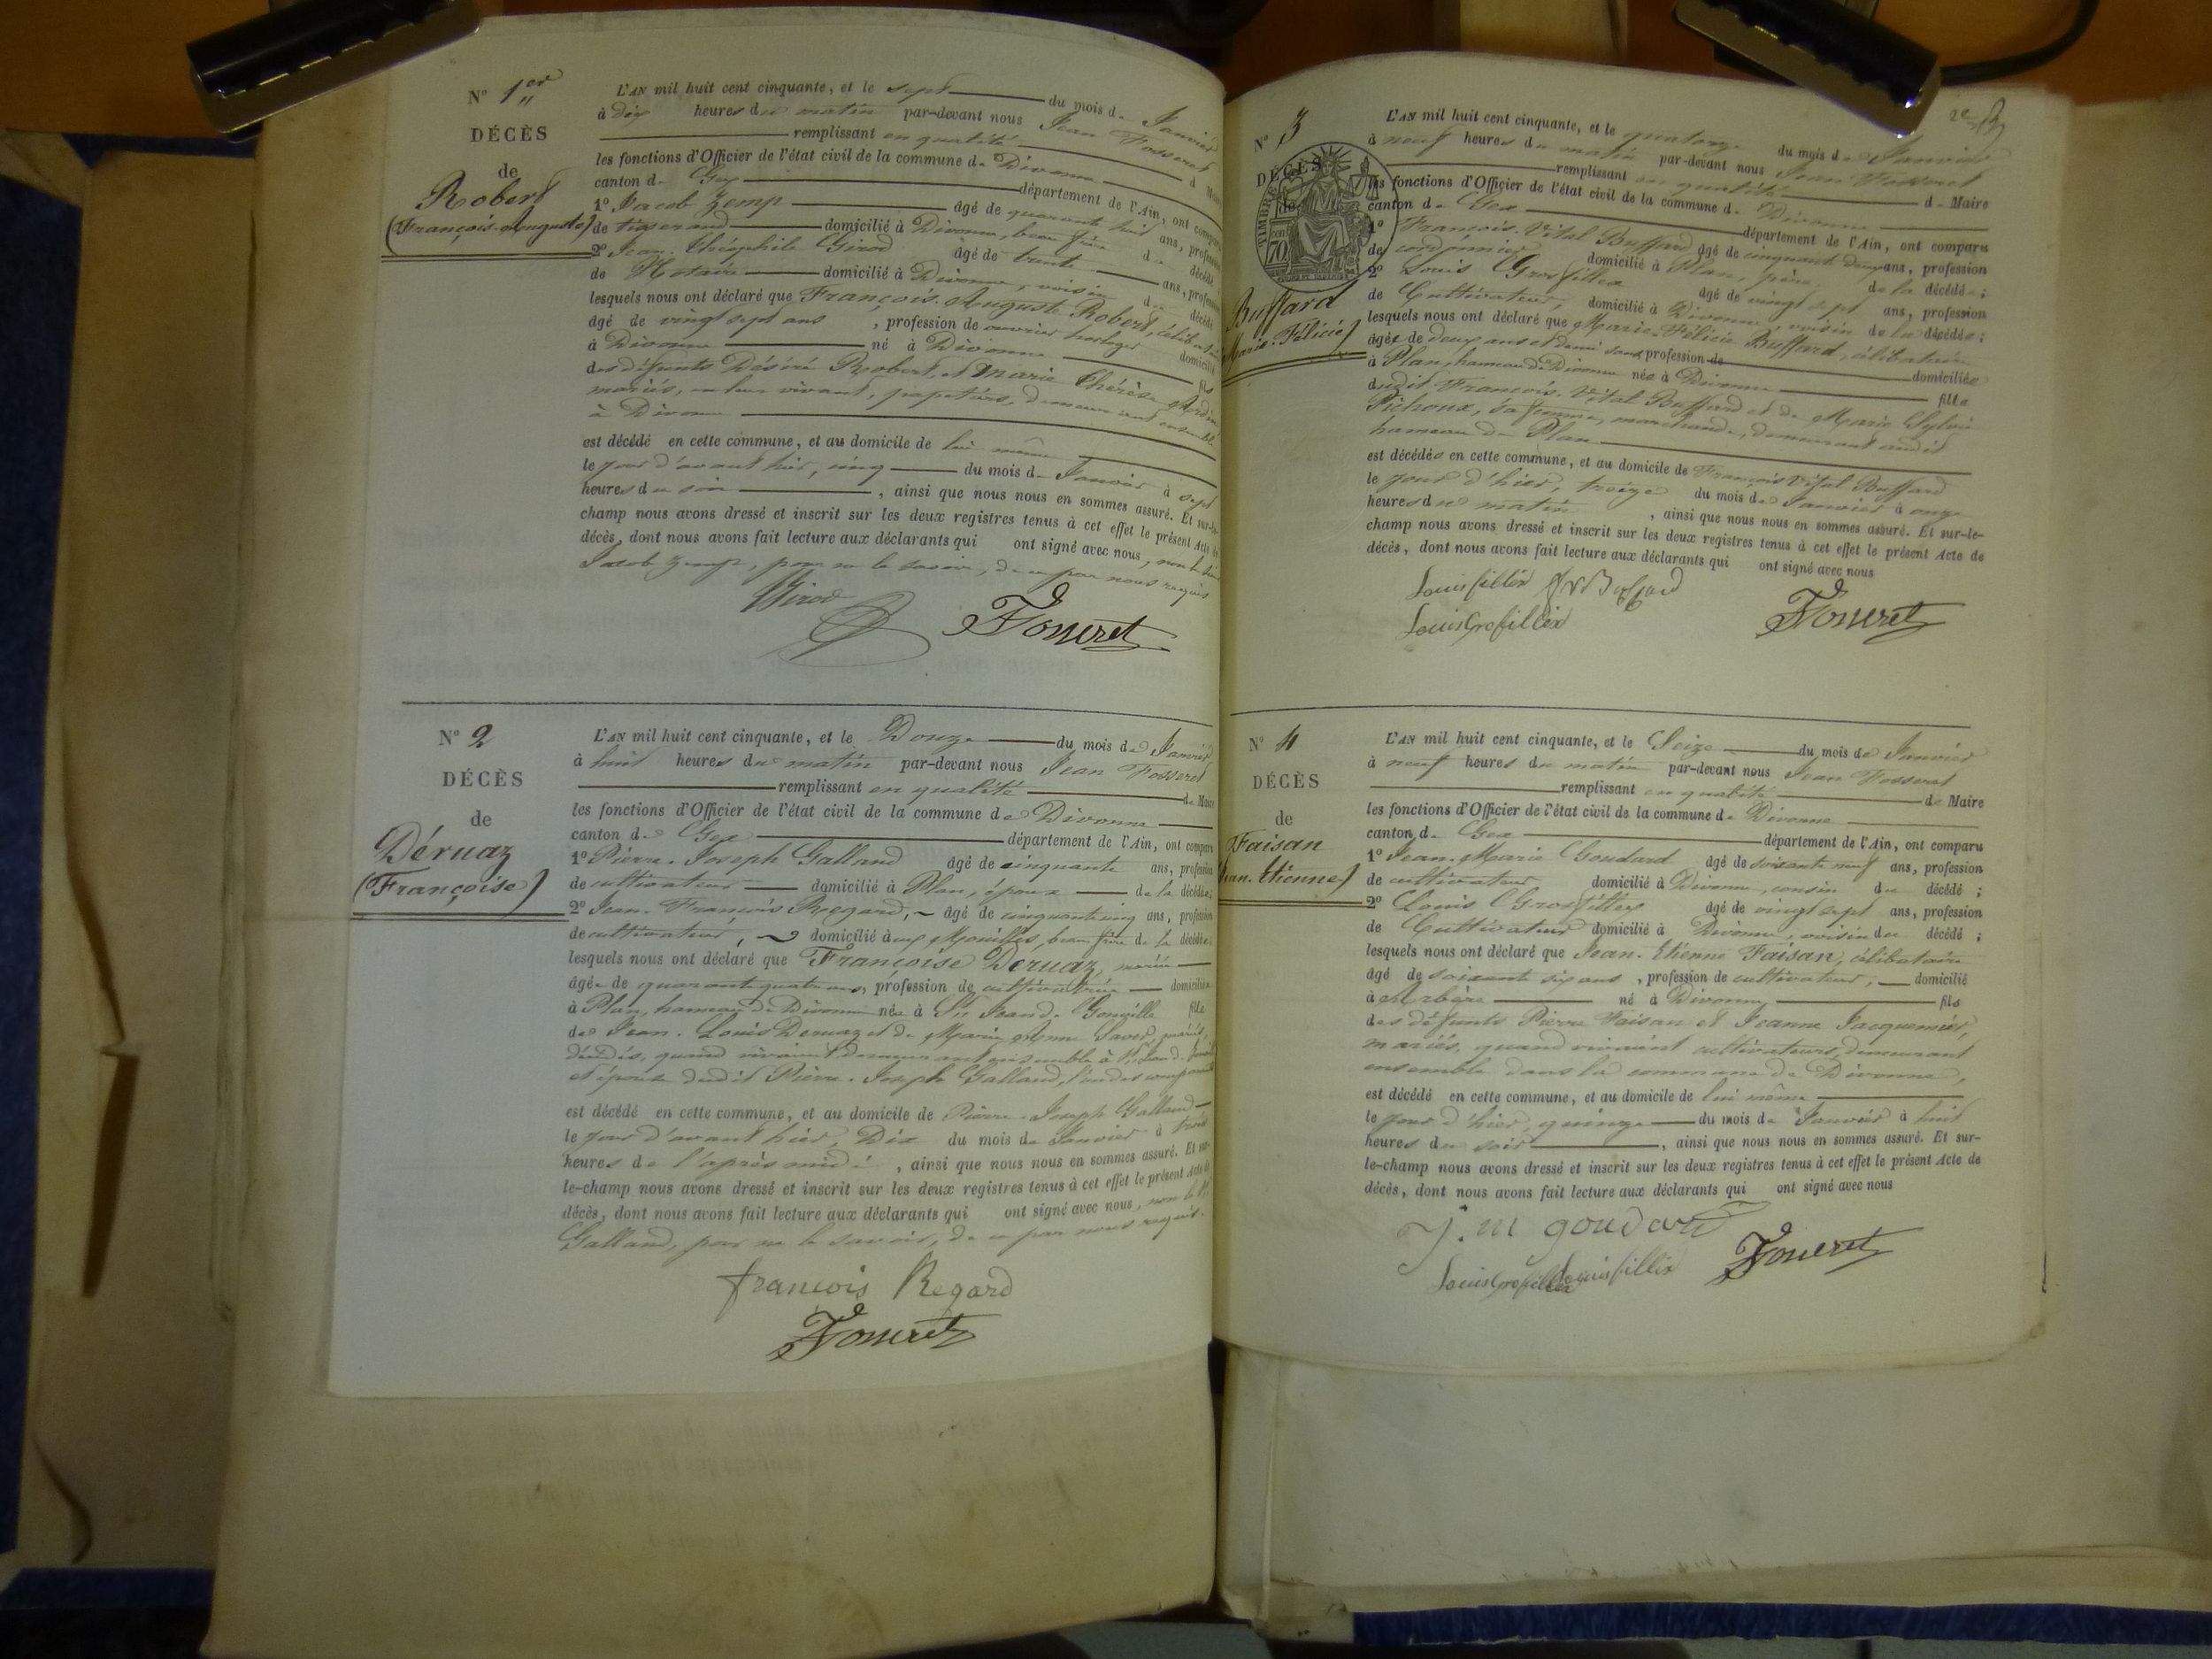 N° 1er
DÉCÈS
de
Robert
(François-Auguste)
L'AN mil huit cent cinquante, et le sept du mois de Janvier
à dix heures du matin par-devant nous Jean Fosseret
remplissant en qualité d
les fonctions d'Officier de l'état civil de la commune de Divonne
canton de Gex département de l'Ain, ont comparu
1° Jacob Zemp âgé de quarante huit ans, profession
de tisserand domicilié à Divonne, beau frère du décédé
2° Jean Théophile Girod âgé de trente ans, profession
de Notaire domicilié à Divonne, voisin du décédé
lesquels nous ont déclaré que François-Auguste Robert, célibataire
âgé de vingt sept ans, profession de ouvrier horloger domicilié
à Divonne né à Divonne fils
des défunts Désiré Robert, et Marie Thérèse
mariés, en leur vivant, papetiers, demeurant ensemble
à Divonne
est décédé en cette commune, et au domicile de lui même
le jour d'avant hier, cinq du mois de Janvier à sept
heures du soir, ainsi que nous nous en sommes assuré. Et sur-le-
champ nous avons dressé et inscrit sur les deux registres tenus à cet effet le présent Acte de
décès, dont nous avons fait lecture aux déclarants qui ont signé avec nous, non le
Jacob Zemp, pour ne le savoir, de ce par nous requis
Girod
Fosseret
N° 2
DÉCÈS
de
Déruaz
(Françoise)
L'AN mil huit cent cinquante, et le Douze du mois de Janvier
à huit heures du matin par-devant nous Jean Fosseret
remplissant en qualité de Maire
les fonctions d'Officier de l'état civil de la commune de Divonne
canton de Gex département de l'Ain, ont comparu
1° Pierre-Joseph Galland âgé de cinquante ans, profession
de cultivateur domicilié à Plan, époux de la décédée
2° Jean-François Regard, âgé de cinquante cinq ans, profession
de cultivateur, domicilié aux Mouilles, beau frère de la décédée
lesquels nous ont déclaré que Françoise Deruaz, mariée
âgée de quarante quatre ans, profession de cultivatrice domiciliée
à Plan, hameau de Divonne née à St Jean de Gonville fille
de Jean-Louis Deruaz et de Marie Anne mariés,
décédés, quand vivaient demeurant ensemble à St Jean de Gonville
et épouse dudit Pierre-Joseph Galland, l'un des comparants
est décédé en cette commune, et au domicile de Pierre-Joseph Galland
le jour d'avant hier, Dix du mois de Janvier à trois
heures de l'après midi, ainsi que nous nous en sommes assuré. Et sur-
le-champ nous avons dressé et inscrit sur les deux registres tenus à cet effet le présent Acte de
décès, dont nous avons fait lecture aux déclarants qui ont signé avec nous, non le
Galland, pour ne le savoir, de ce par nous requis.
francois Regard
Fosseret
N° 3
DÉCÈS
de
Buffard
Marie-Félicie)
TIMBRE
70
L'AN mil huit cent cinquante, et le quatorze du mois de Janvier
à neuf heures du matin par-devant nous Jean Fosseret
remplissant en qualité de Maire
les fonctions d'Officier de l'état civil de la commune de Divonne
canton de Gex département de l'Ain, ont comparu
1° François-Vital Buffard âgé de cinquante deux ans, profession
de cordonnier domicilié à Plan, père de la décédée;
2° Louis Grosfillex âgé de vingt sept ans, profession
de Cultivateur, domicilié à Divonne, voisin de la décédée;
lesquels nous ont déclaré que Marie-Félicie Buffard, célibataire
âgée de deux ans et demi sans profession de domiciliée
à Plan, hameau de Divonne née à Divonne fille
dudit François-Vital Buffard et de Marie Sylvie
Pichoux, sa femme, marchande, demeurant audit
hameau de Plan
est décédée en cette commune, et au domicile de François Vital Buffard
le jour d'hier, treize du mois de Janvier à onze
heures du matin, ainsi que nous nous en sommes assuré. Et sur-le-
champ nous avons dressé et inscrit sur les deux registres tenus à cet effet le présent Acte de
décès, dont nous avons fait lecture aux déclarants qui ont signé avec nous
Louis fillex Buffard
Louis Grofillex
Fosseret
N° 4
DÉCÈS
de
Faisan
Jean-Etienne)
L'AN mil huit cent cinquante, et le Seize du mois de Janvier
à neuf heures du matin par-devant nous Jean Fosseret
remplissant en qualité de Maire
les fonctions d'Officier de l'état civil de la commune de Divonne
canton de Gex département de l'Ain, ont comparu
1° Jean-Marie Goudard âgé de soixante neuf ans, profession
de cultivateur domicilié à Divonne, cousin du décédé;
2° Louis Grosfillex âgé de vingt sept ans, profession
de Cultivateur domicilié à Divonne, voisin du décédé;
lesquels nous ont déclaré que Jean-Etienne Faisan, célibataire
âgé de soixante six ans, profession de cultivateur, domicilié
à Arbère né à Divonne, fils
des défunts Pierre Faisan et Jeanne Jacquemier,
mariés, quand vivaient cultivateurs, demeurant
ensemble dans la commune de Divonne,
est décédé en cette commune, et au domicile de lui même
le jour d'hier, quinze du mois de Janvier à huit
heures du soir, ainsi que nous nous en sommes assuré. Et sur-
le-champ nous avons dressé et inscrit sur les deux registres tenus à cet effet le présent Acte de
décès, dont nous avons fait lecture aux déclarants qui ont signé avec nous
J. M goudard
Louis Grofillex Louis fillix
Fosseret